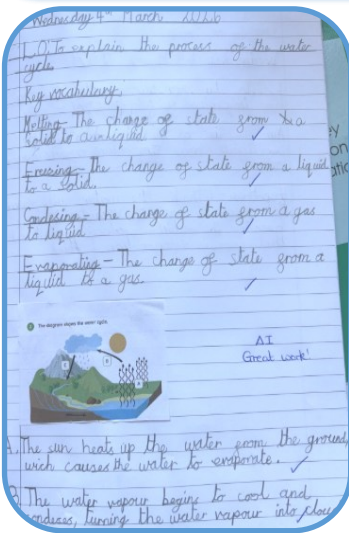 Wednesday 4th March 2026
L.O. To explain the process of the water
cycle.
Key vocabulary
Melting - The change of state from a
solid to a liquid.
Freezing - The change of state from a liquid
to a solid.
Condesing - The change of state from a gas
to liquid
Evaporating - The change of state from a
liquid to a gas.
The diagram shows the water cycle.
C
B
A
AI
Great work!
A. The sun heats up the water from the ground,
wich causes the water to evaporate.
B. The water vapour begins to cool and
condeses, turning the water vapour into clou